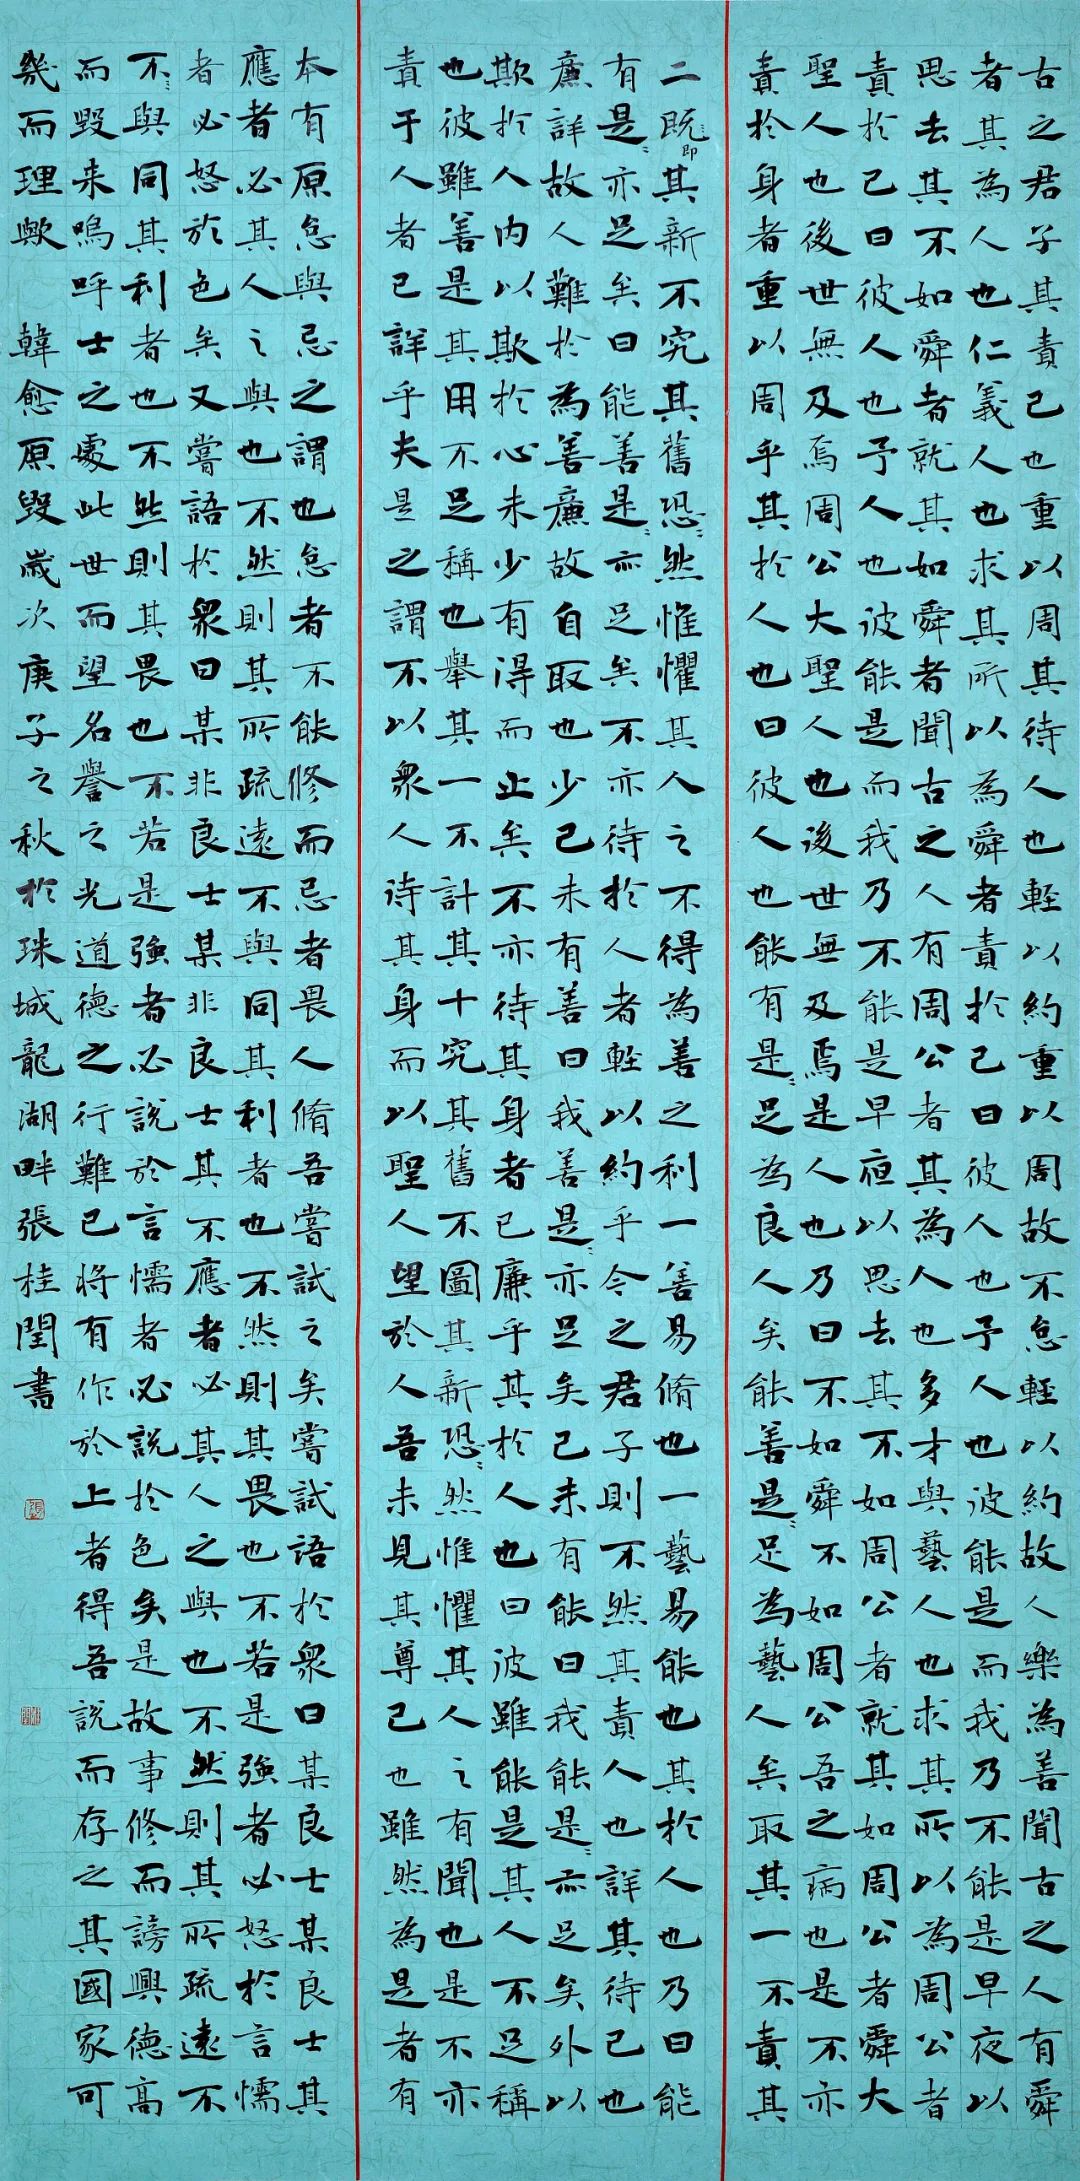 古之君子其責己也重以周其待人也輕以約重以周故不怠輕以約故人樂為善聞古之人有舜
者其為人也仁義人也求其所以為舜者責於己曰彼人也予人也彼能是而我乃不能是早夜以
思去其不如舜者就其如舜者聞古之人有周公者其為人也多才與藝人也求其所以為周公者
責於己曰彼人也予人也彼能是而我乃不能是早夜以思去其不如周公者就其如周公者舜大
聖人也後世無及焉周公大聖人也後世無及焉是人也乃曰不如舜不如周公吾之病也是不亦
責於身者重以周乎其於人也曰彼人也能有是〻足為良人矣能善是〻足為藝人矣取其一不責其
二既〻即其新不究其舊恐〻然惟懼其人之不得為善之利一善易脩也一藝易能也其於人也乃曰能
有是〻亦足矣曰能善是〻亦足矣不亦待於人者輕以約乎今之君子則不然其責人也詳其待己也
廉詳故人難於為善廉故自取也少己未有善曰我善是〻亦足矣己未有能曰我能是〻亦足矣外以
欺於人內以欺於心未少有得而止矣不亦待其身者已廉乎其於人也曰彼雖能是其人不足稱
也彼雖善是其用不足稱也舉其一不計其十究其舊不圖其新恐〻然惟懼其人之有聞也是不亦
責于人者已詳乎夫是之謂不以眾人待其身而以聖人望於人吾未見其尊己也雖然為是者有
本有原怠與忌之謂也怠者不能修而忌者畏人脩吾嘗試之矣嘗試語於眾曰某良士某良士其
應者必其人之與也不然則其所疏遠不與同其利者也不然則其畏也不若是強者必怒於言懦
者必怒於色矣又嘗語於眾曰某非良士某非良士其不應者必其人之與也不然則其所疏遠不
不〻與同其利者也不然則其畏也不若是強者必說於言懦者必說於色矣是故事修而謗興德高
而毀来嗚呼士之處此世而望名譽之光道德之行難已將有作於上者得吾說而存之其國家可
幾而理歟 韓愈原毀歲次庚子之秋於珠城龍湖畔張桂閏書